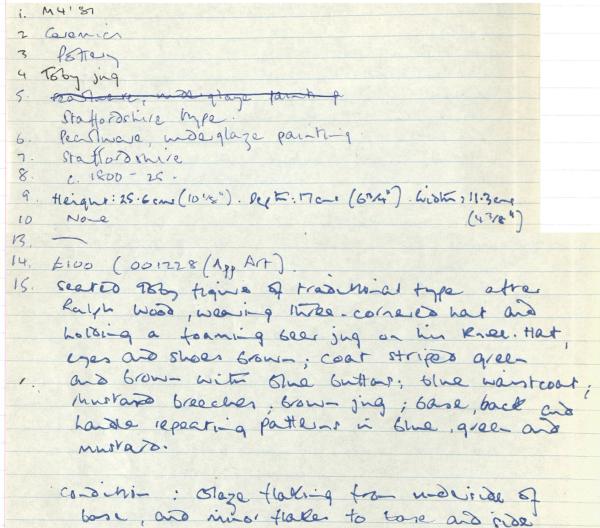 1. M4'81
2 Ceramics
3 Pottery
4 Toby jug
5. pearlware, underglaze painting
Staffordshire type.
6. Pearlware, underglaze painting.
7. Staffordshire
8. c. 1800-25.
9. Height: 25.6cms (10 1/8"). Depth: 17cms (6 3/4"). Width: 11.3cms
(4 3/8")
10 None
13. —
14. £100 (001228/App Art).
15. Seated Toby figure of traditional type after
Ralph Wood, wearing three-cornered hat and
holding a foaming beer jug on his knee. Hat,
eyes and shoes brown; coat striped green
and brown with blue buttons; blue waistcoat;
mustard breeches; brown jug; base, back and
handle repeating patterns in blue, green and
mustard.
Condition: Glaze flaking from underside of
base, and minor flakes to base and side